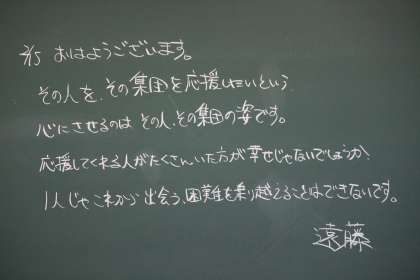 2/5 おはようございます。
その人を、その集団を応援したいという
心にさせるのは その人、その集団の姿です。
応援してくれる人がたくさんいた方が幸せじゃないでしょうか?
1人じゃこれから出会う、困難を乗り越えることはできないです。
遠藤